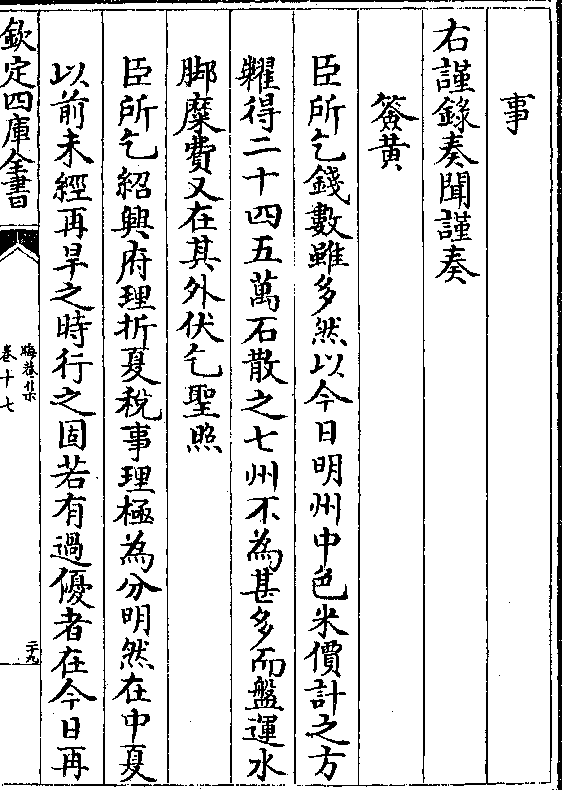 事
右謹錄奏聞謹奏
簽黃
臣所乞錢數雖多然以今日明州中色米價計之方
糴得二十四五萬石散之七州不為甚多而盤運水
脚糜費又在其外伏乞聖照
臣所乞紹興府理折夏稅事理極為分明然在中夏
以前未經再旱之時行之固若有過優者在今日再
欽定四庫全書
晦菴集
卷十七
二十九